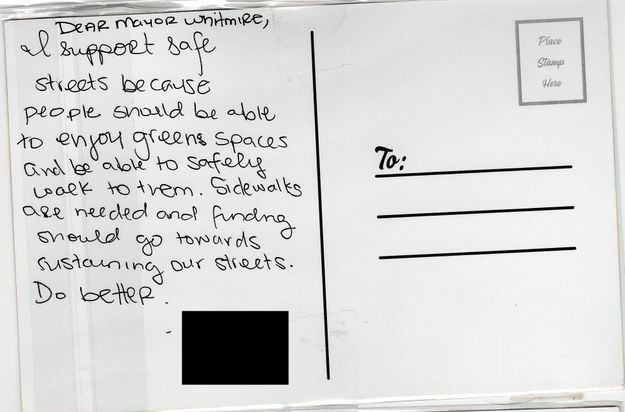 Dear Mayor Whitmire,
I support safe
streets because
people should be able
to enjoy greens spaces
and be able to safely
walk to them. Sidewalks
are needed and funding
should go towards
sustaining our streets.
Do better.
-
Place
Stamp
Here
To: